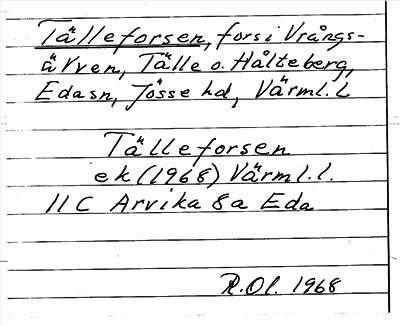 Tälleforsen, fors i Vrångs-
älven, Tälle o. Hålteberg,
Eda sn, Jösse hd, Värml. l.
Tälleforsen
ek (1968) Värml. l.
11 C Arvika 8a Eda
R. Ol. 1968